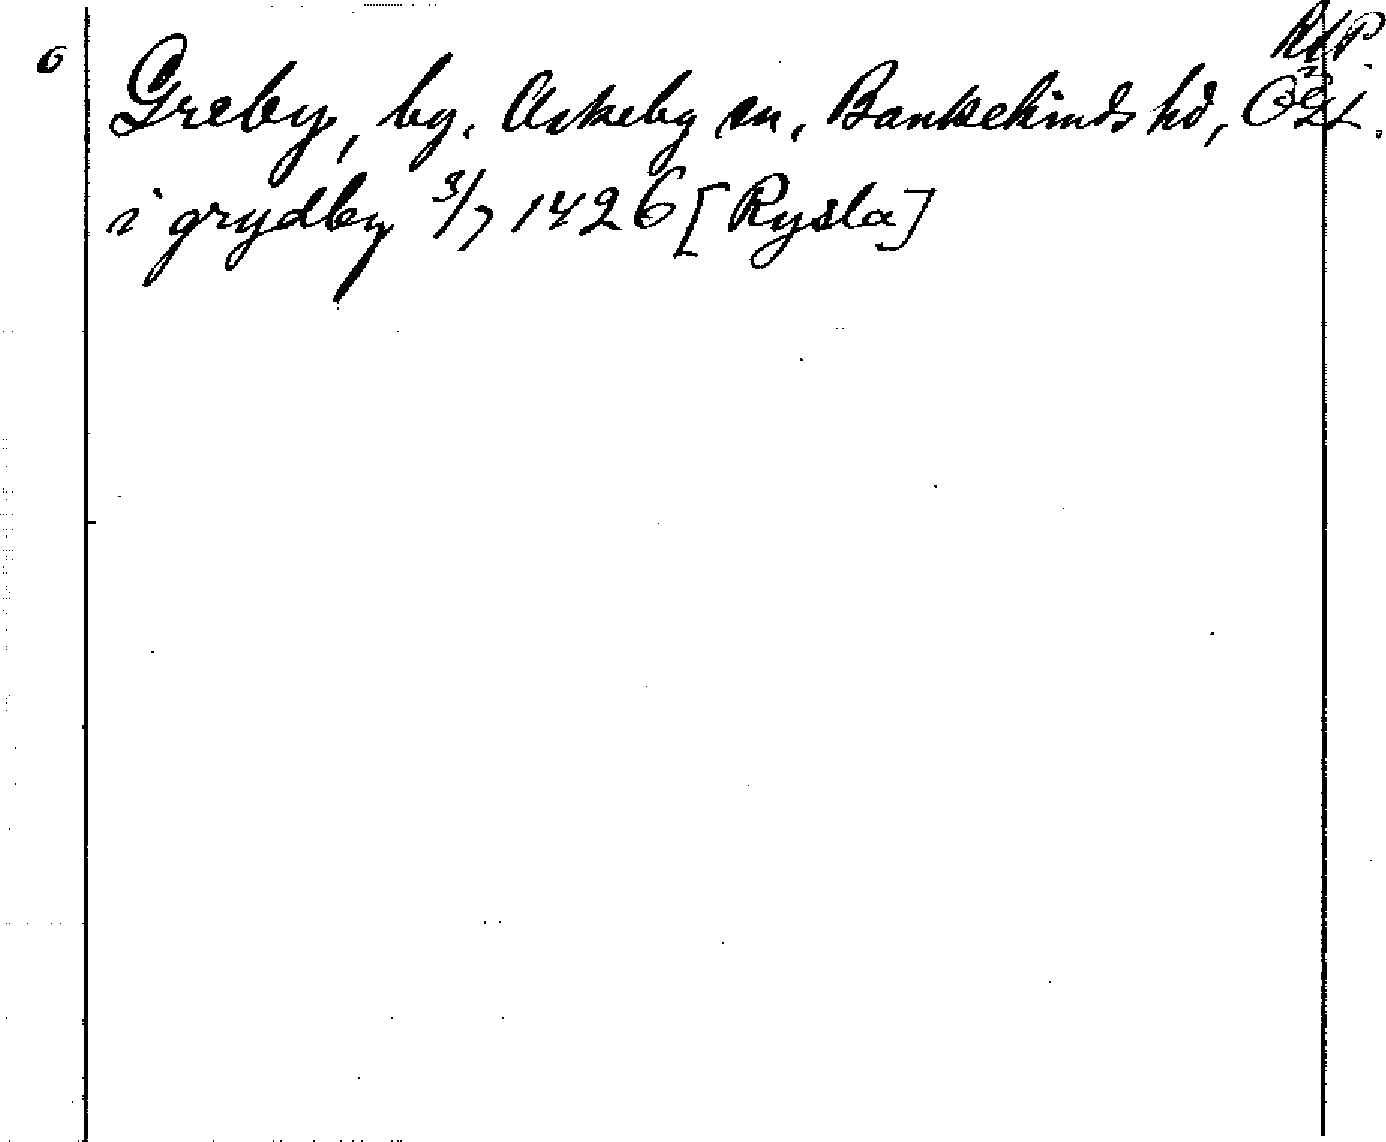 RAP
6 Greby, by, Askeby sn, Bankekinds hd, Ög.
i grydby 3/7 1426 [Rysla]